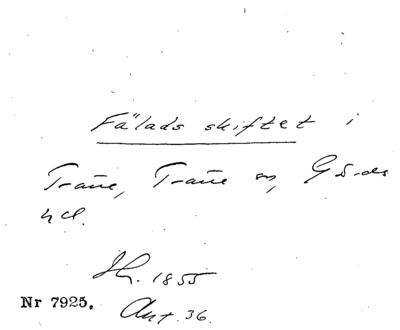 Fälads skiftet i
Trane, Trane sn, Gärds
hd.
Hr. 1855
Nr 7925.
Ant. 36.